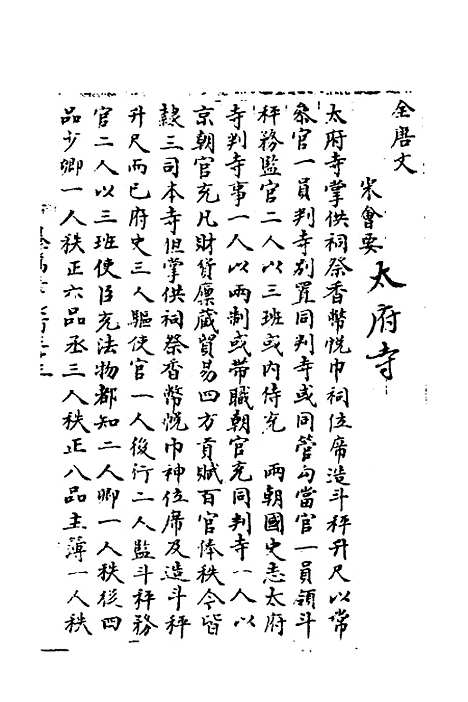 全唐文
宋會要
太府寺
太府寺掌供祠祭香幣帨巾祠位席造斗秤升尺以常
叅官一員判寺別置同判寺或同管勾當官一員領斗
秤務監官二人以三班或内侍充 兩朝國史志太府
寺判寺事一人以兩制或帶職朝官充同判寺一人以
京朝官充凡財貨廩藏貿易四方貢賦百官俸秩今皆
隸三司本寺但掌供祠祭香幣帨巾神位席及造斗秤
升尺而已府史三人驅使官一人後行二人監斗秤務
官二人以三班使臣充法物都知二人卿一人秩從四
品少卿一人秩正六品丞三人秩正八品主簿一人秩